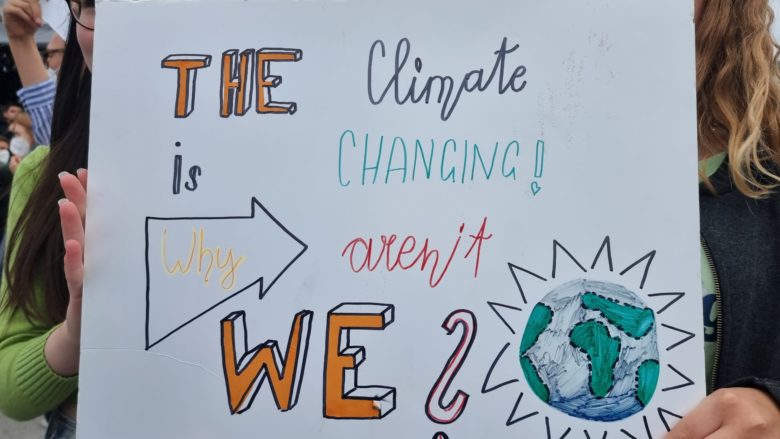 THE Climate
is CHANGING!
Why aren't
WE?